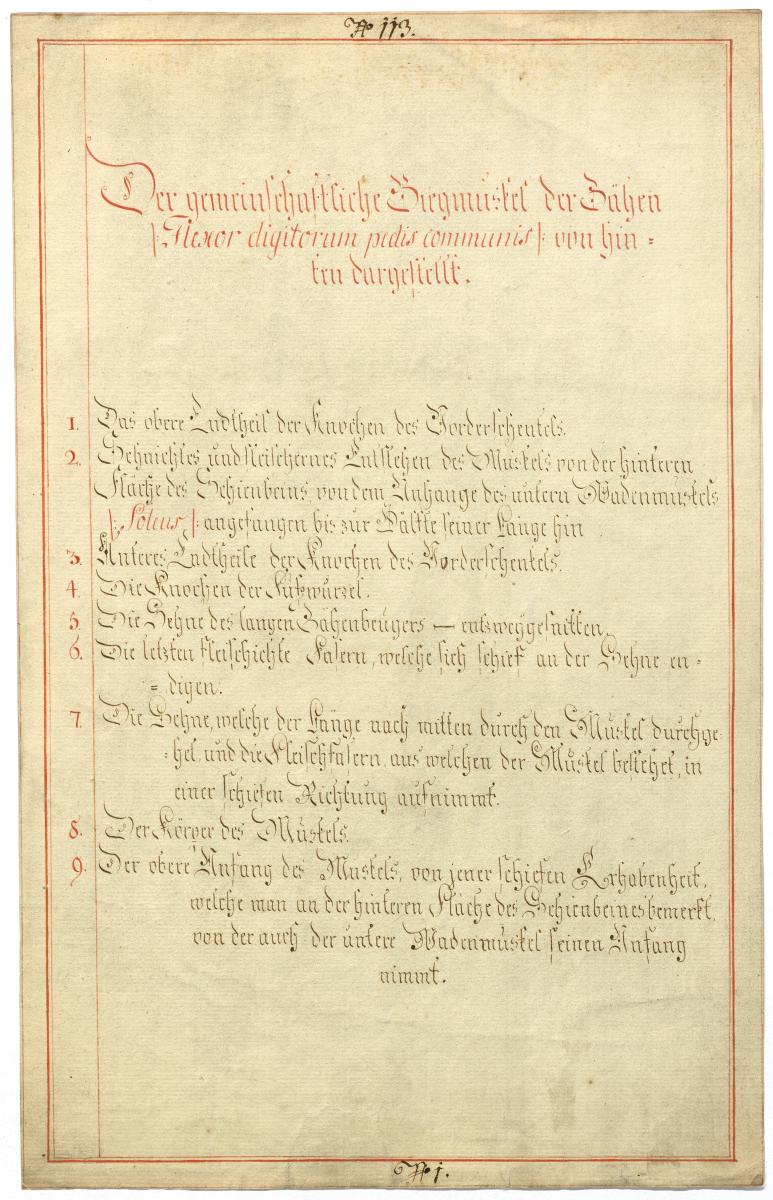 No 113.
Der gemeinschaftliche Biegmuskel der Zähen
|: Flexor digitorum pedis communis :| von hin=
ten dargestellt.
1. Das obere Endtheil der Knochen des Vorderschenkels.
2. Sehnichtes und fleischernes Entstehen des Muskels von der hinteren
Fläche des Schienbeins, von dem Anhange des untern Wadenmuskels
|: Soleus, :| angefangen bis zur Hälfte seiner Länge hin
3. Unteres Endtheile der Knochen des Vorderschenkels.
4. Die Knochen der Fußwurzel.
5. Die Sehne des langen Zähenbeugers — entzweygesnitten,
6. Die letzten fleischichte Fasern, welche sich schief an der Sehne en=
=digen.
7. Die Sehne, welche der Länge nach mitten durch den Muskel durchge=
=het, und die Fleischfasern, aus welchen der Muskel bestehet, in
einer schiefen Richtung aufnimmt.
8. Der Körper des Muskels.
9. Der obere Anfang des Muskels, von jener schiefen Erhabenheit,
welche man an der hinteren Fläche des Schienbeines bemerkt,
von der auch der untere Wadenmuskel seinen Anfang
nimmt.
No 1.